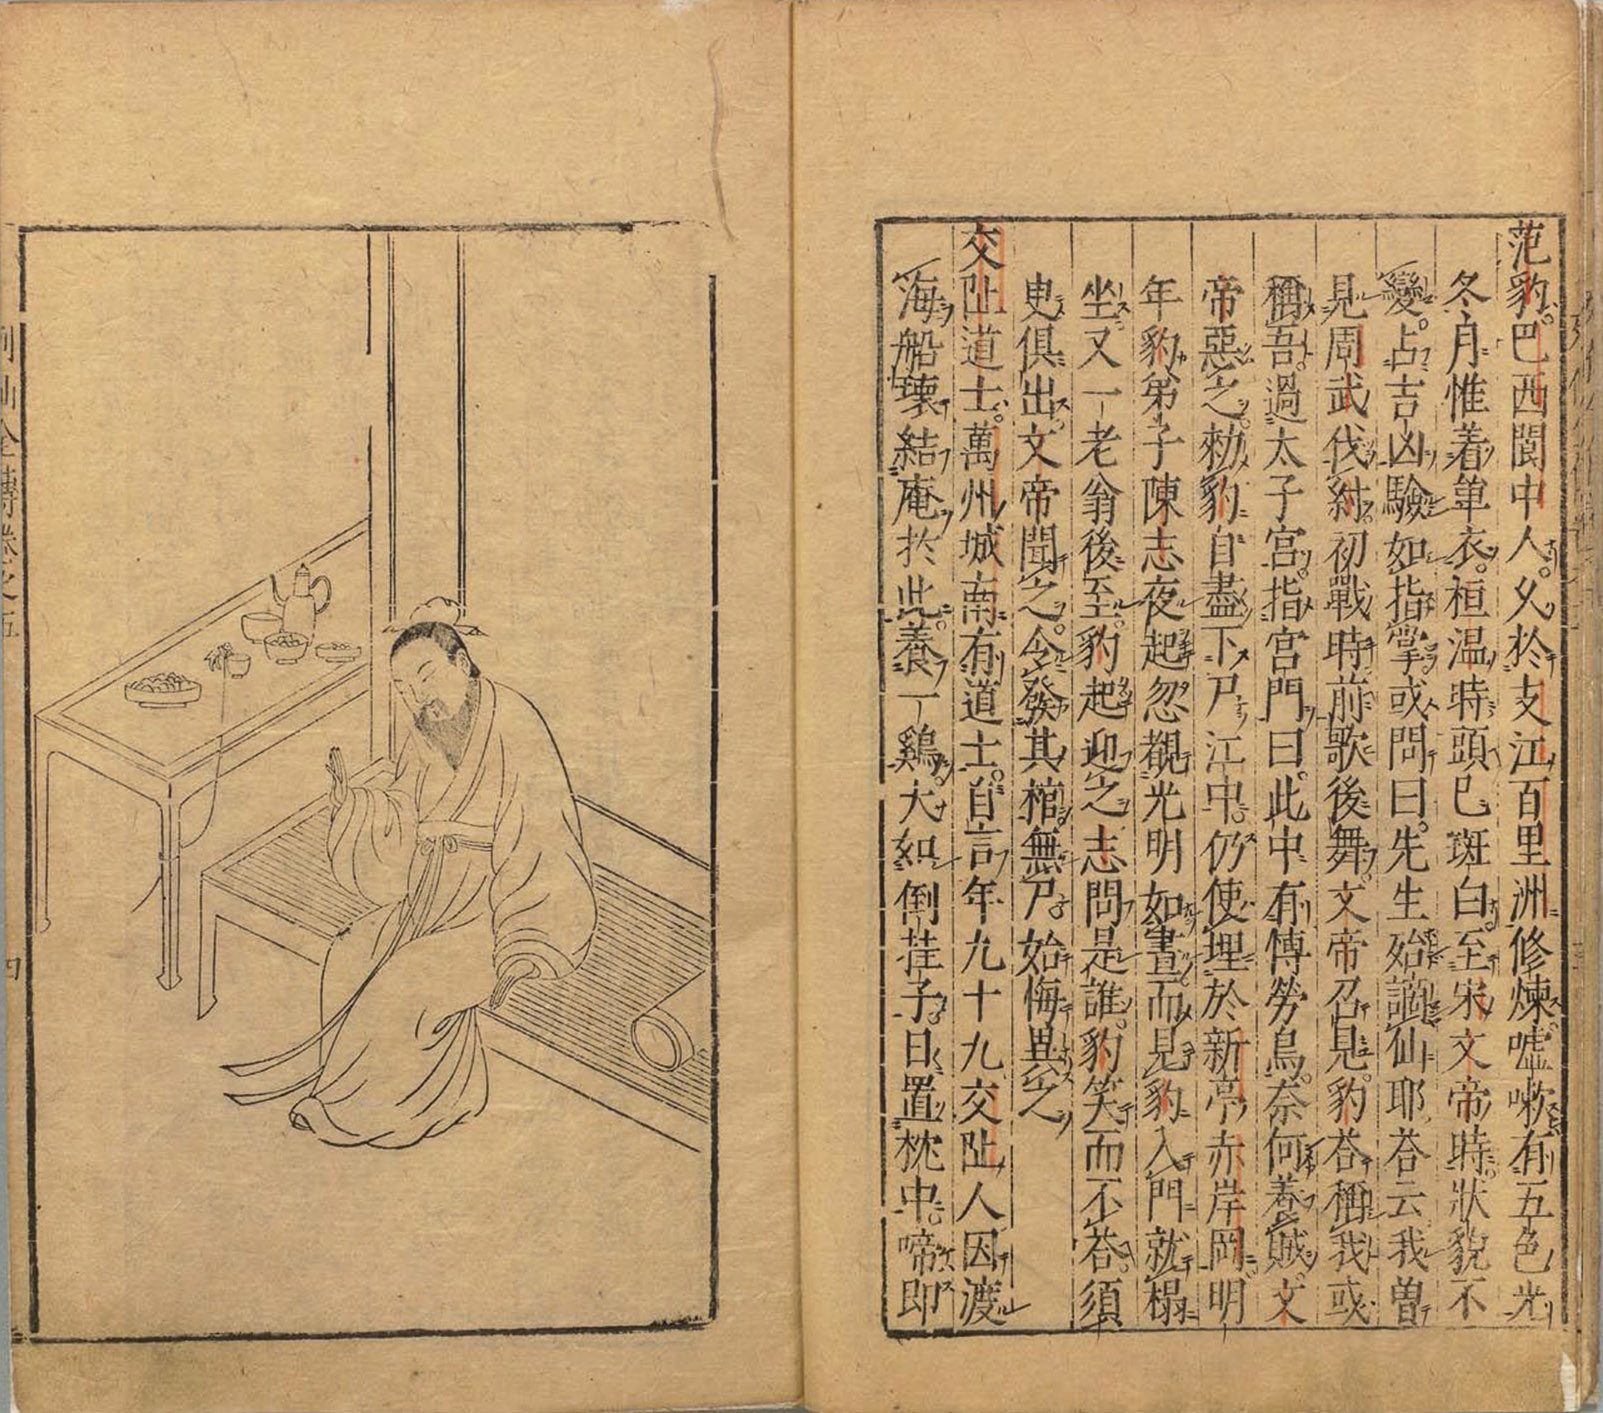 范豹巴西閬中人久於支江百里洲修煉噓嗽有五色光
冬月惟着单衣桓温時頭已斑白至宋文帝時狀貌不
變占吉凶驗如指掌或問曰先生殆謫仙耶荅云我曽
見周武伐紂初戰時前歌後舞文帝召見豹荅稱我或
稱吾過太子宮指宮門曰此中有博勞鳥奈何養賊文
帝惡之勑豹自盡下尸江中仍使埋於新亭赤岸岡明
年豹弟子陳志夜起忽覩光明如晝而見豹入門就榻
坐又一老翁後至豹起迎之志問是誰豹笑而不荅須
臾俱出文帝聞之令發其棺無尸始悔異之
交趾道士萬州城南有道士自言年九十九交趾人因渡
海船壊結庵於此養一鷄大如倒挂子日置枕中啼即
列仙全傳卷之五
四